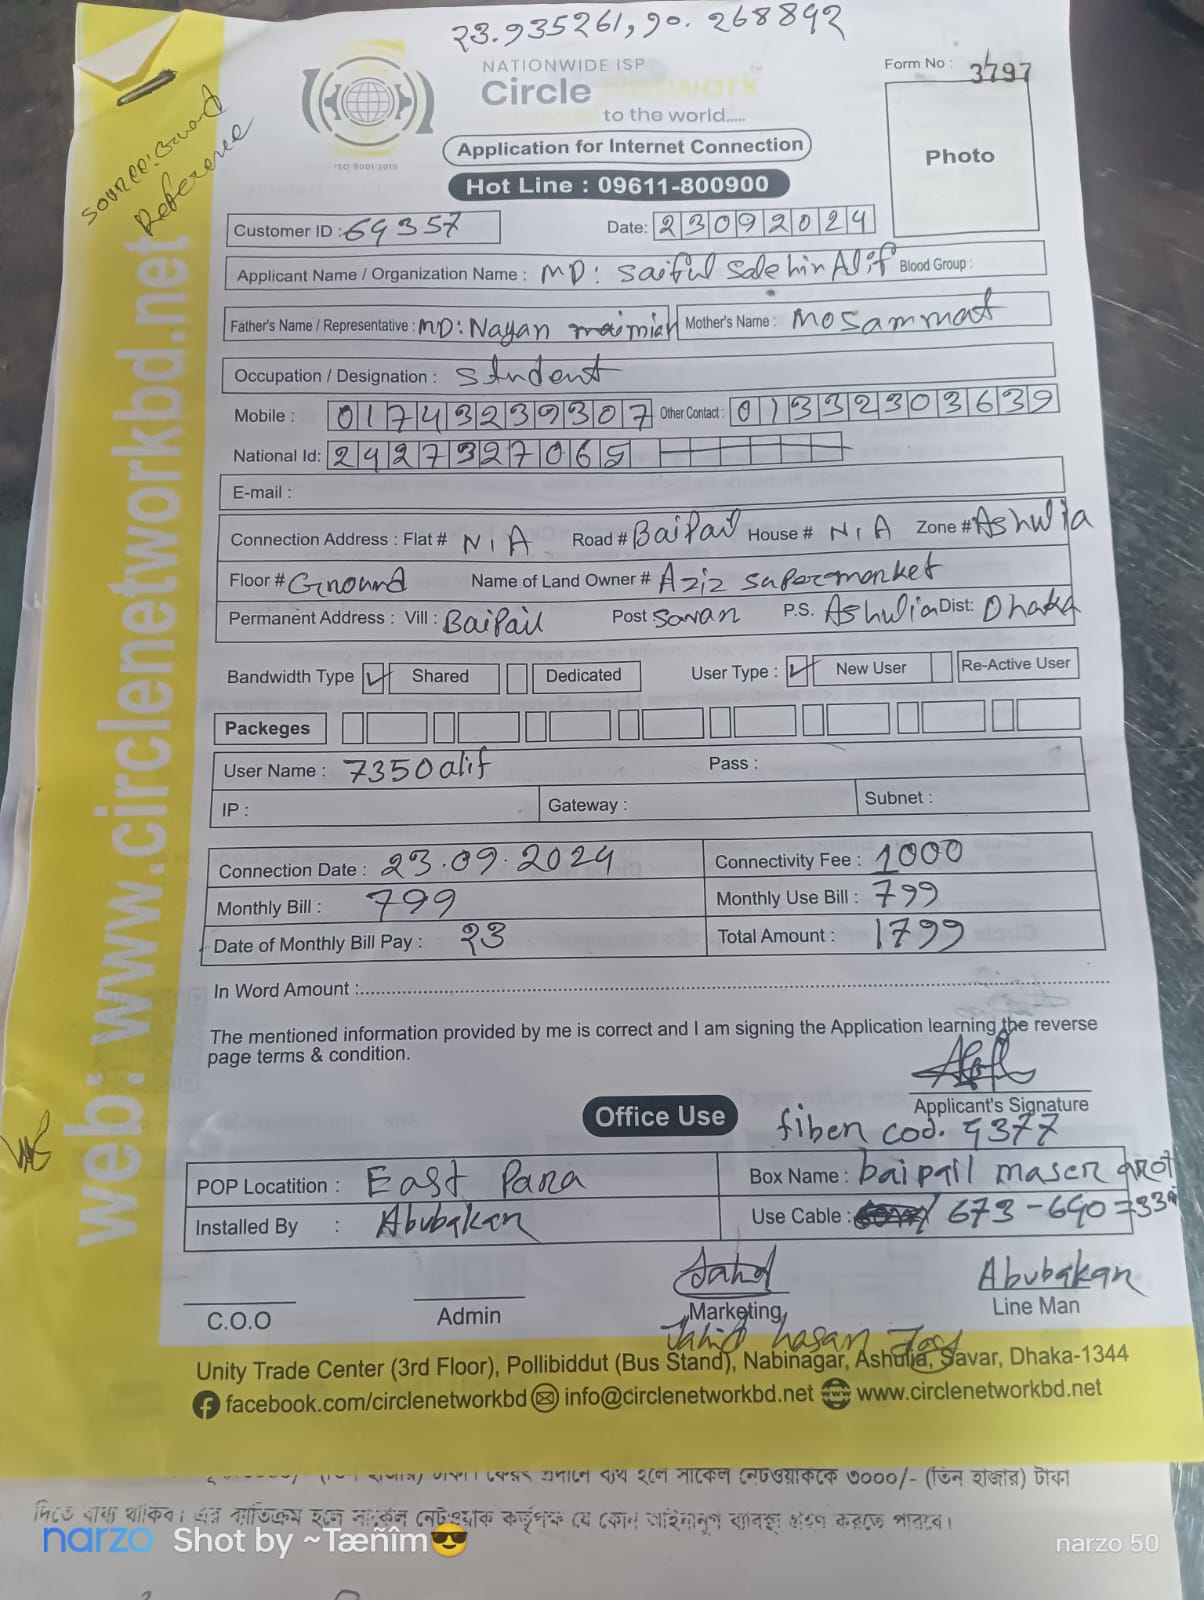 23.935261, 90.268892
NATIONWIDE ISP
Circle Network
to the world.....
Form No : 3797
ISO 9001:2015
Application for Internet Connection
Photo
Hot Line : 09611-800900
SOURCE:
Reference
web: www.circlenetworkbd.net
Customer ID : 69357
Date: 23092024
Applicant Name / Organization Name : MD: Saiful Salehin Alif Blood Group :
Father's Name / Representative : MD: Nayan miah Mother's Name : Mosammat
Occupation / Designation : Student
Mobile : 01743239307 Other Contact : 01332303639
National Id: 2427327065
E-mail :
Connection Address : Flat # N/A Road # Baipail House # N/A Zone # Ashulia
Floor # Ground Name of Land Owner # Aziz supermarket
Permanent Address : Vill : Baipail Post Savar P.S. Ashulia Dist: Dhaka
Bandwidth Type Shared Dedicated User Type : New User Re-Active User
Packeges
User Name : 7350alif Pass :
IP : Gateway : Subnet :
Connection Date : 23.09.2024 Connectivity Fee : 1000
Monthly Bill : 799 Monthly Use Bill : 799
Date of Monthly Bill Pay : 23 Total Amount : 1799
In Word Amount :
The mentioned information provided by me is correct and I am signing the Application learning the reverse
page terms & condition.
Applicant's Signature
Office Use
fiber cod. 9377
POP Locatition : East Para Box Name : baipail maser arot
Installed By : Abubakar Use Cable : 673-640=33
Abubakar
C.O.O Admin Marketing Line Man
Jahid hasan
Unity Trade Center (3rd Floor), Pollibiddut (Bus Stand), Nabinagar, Ashulia, Savar, Dhaka-1344
facebook.com/circlenetworkbd info@circlenetworkbd.net www.circlenetworkbd.net
(তিন হাজার) টাকা। ফেরৎ প্রদানে ব্যর্থ হলে সার্কেল নেটওয়ার্ককে ৩০০০/- (তিন হাজার) টাকা
দিতে বাধ্য থাকিব। এর ব্যতিক্রম হলে সার্কেল নেটওয়ার্ক কর্তৃপক্ষ যে কোন আইনানুগ ব্যবস্থা গ্রহণ করতে পারবে।
narzo Shot by ~Tæñîm😎 narzo 50